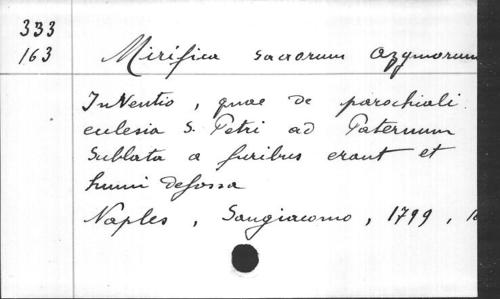 333
163
Mirifica sacrorum Azymorum
InVentio, quae de parochiali
eclesia S. Petri ad Paternum
Sublata a furibus erant et
humi defossa
Naples, Sangiacomo, 1799,